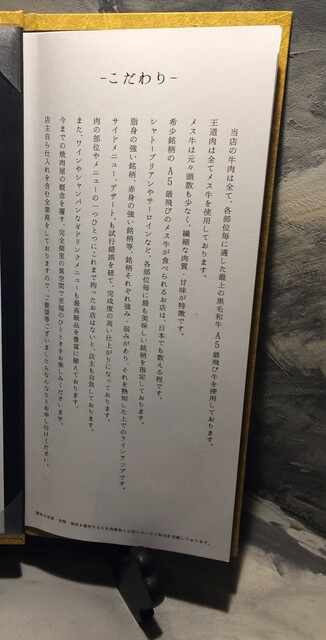 -こだわり-
当店の牛肉は全て、各部位毎に適した最上の黒毛和牛A5最飛び牛を使用しております。
王道肉は全てメス牛を使用しております。
メス牛は元々頭数も少なく、繊細な肉質・甘味が特徴です。
希少銘柄のA5最飛びのメス牛が食べられるお店は、日本でも数える程です。
シャトーブリアンやサーロインなど、各部位毎に最も美味しい銘柄を指定しております。
脂身の強い銘柄、赤身の強い銘柄等、銘柄それぞれ強み・弱みがあり、それを熟知した上でのラインアップです。
サイドメニュー、デザートも試行錯誤を経て、完成度の高い仕上がりになっております。
肉の部位やメニューの一つひとつにこれまで拘ったお店はないと、店主も自負しております。
また、ワインやシャンパンなどドリンクメニューも最高級品を豊富に揃えております。
今までの焼肉屋の概念を覆す、完全個室の異空間で至福のひとときをお楽しみくださいませ。
店主自ら仕入れを含む全業務をしておりますので、ご要望等ございましたらなんなりとお申し付けください。